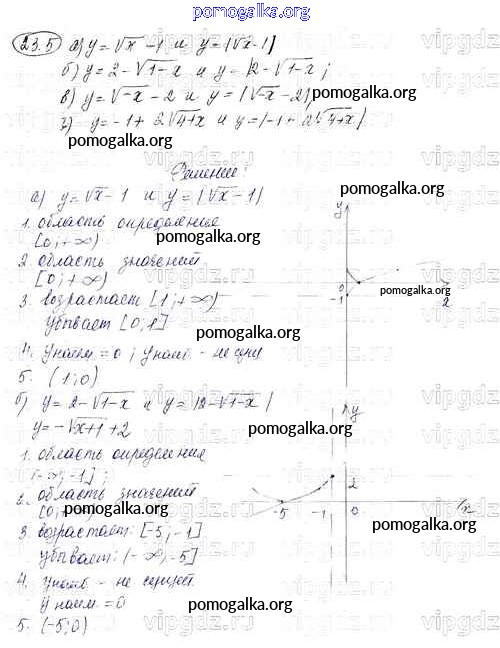 pomogalka.org
23.5 а) y = √x - 1 и y = |√x - 1|
б) y = 2 - √1-x и y = |2 - √1-x|;
в) y = √-x - 2 и y = |√-x - 2|
pomogalka.org
г) y = -1 + 2√4+x и y = |-1 + 2√4+x|
pomogalka.org
Решение:
а) y = √x - 1 и y = |√x - 1|
pomogalka.org
1. область определения
[0; +∞)
pomogalka.org
2. область значений
[0; +∞)
pomogalka.org
3. возрастает [1; +∞)
убывает [0; 1]
pomogalka.org
4. y наим = 0; y наиб - не сущ
5. (1; 0)
pomogalka.org
y
0
-1
2
pomogalka.org
б) y = 2 - √1-x и y = |2 - √1-x|
y = -√x+1 + 2
pomogalka.org
1. область определения
(-∞; -1];
pomogalka.org
2. область значений
[0;
pomogalka.org
3. возрастает: [-5; -1]
убывает: (-∞; -5]
4. y наиб - не сущест
y наим = 0
pomogalka.org
5. (-5; 0)
pomogalka.org
y
2
-5 -1 0 x
pomogalka.org
vipgdz.ru